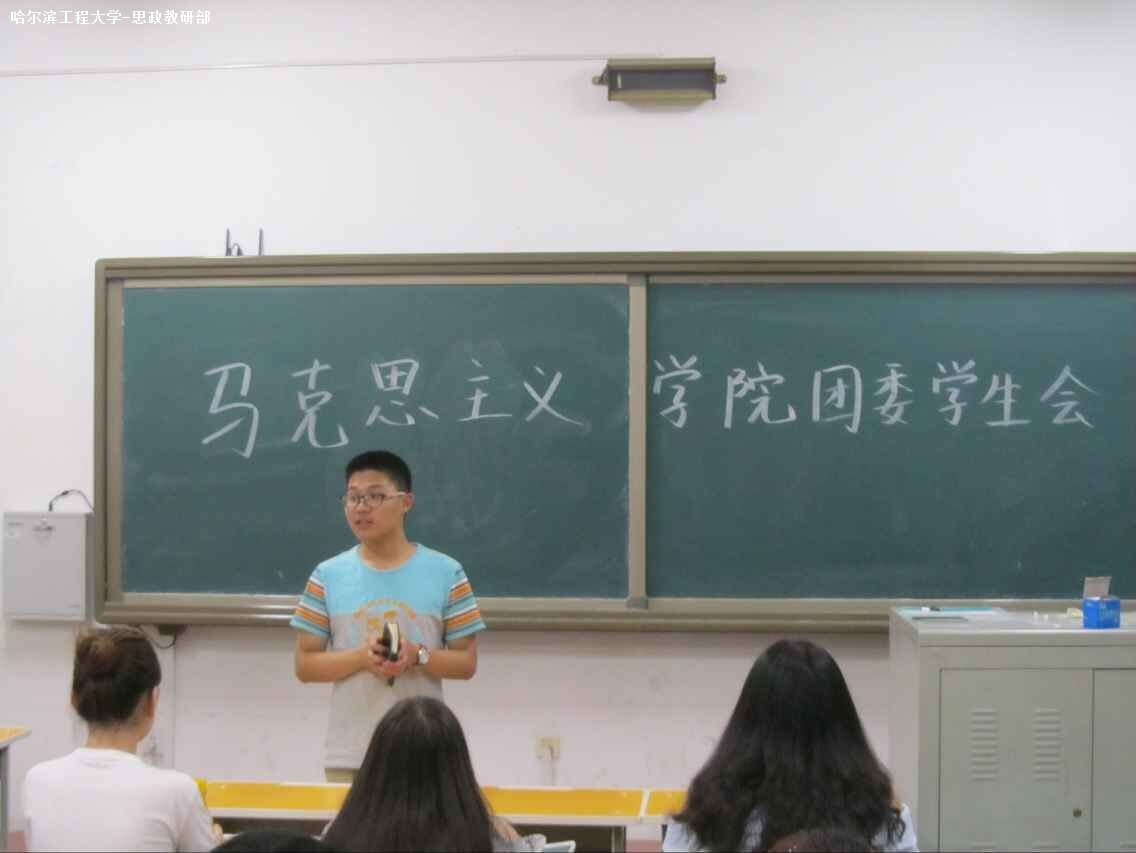 哈尔滨工程大学-思政教研部
马克思主义学院团委学生会